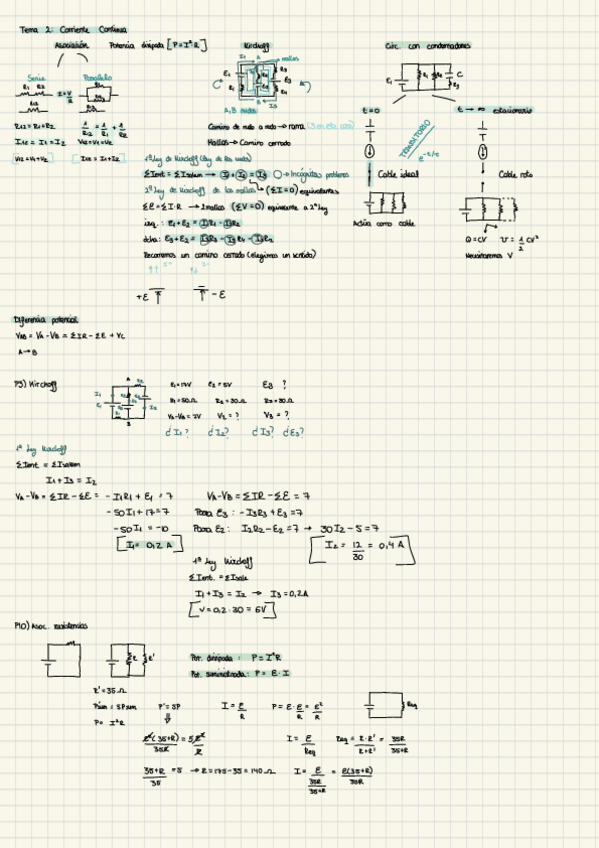 Tema 2: Corriente Continua
Asociación Potencia disipada [P=I²R] Kirchoff Circ. con condensadores
Serie Paralelo
R1 R2 I=V/R
R12=R1+R2 1/R12 = 1/R1 + 1/R2
I12 = I1 = I2 V12=V1=V2
V12=V1+V2 I12 = I1+I2
A mallas
A, B nudos
Camino de nudo a nudo → rama
Mallas → Camino cerrado
1ª ley de Kirchoff (Ley de los nudos)
ΣIent = ΣIsalen → I1 + I2 = I3 → Incógnitas problema
2ª ley de Kirchoff de las mallas (ΣI=0) equivalentes
Σε = ΣI·R → 2 mallas (ΣV=0) equivalente a 2ª ley
izq.: ε1+ε2 = I1R1 - I2R2
Recorremos un camino cerrado (elegimos un sentido)
+ε -ε
t=0 TRANSITORIO t→∞ estacionario
e^-t/τ
Cable ideal Cable roto
Actúa como cable
Q=CV U=1/2 CV²
Necesitaremos V
Diferencia potencial
VAB = VA - VB = ΣIR - Σε + VC
A→B
P3) Kirchoff ε1=17V ε2=5V ε3 ?
R1=50Ω R2=30Ω R3=30Ω
VA-VB=7V V2=? V3=?
¿I1? ¿I2? ¿I3? ¿ε3?
1ª Ley Kirchoff
ΣIent = ΣIsalen
I1+I3 = I2
VA-VB = ΣIR - Σε = -I1R1 + ε1 = 7 VA-VB = ΣIR - Σε = 7
-50I1+17=7 Para ε3: -I3R3+ε3=7
-50I1 = -10 Para ε2: I2R2-ε2=7 → 30I2-5=7
I1=0,2 A I2 = 12/30 = 0,4 A
1ª Ley Kirchoff
ΣIent. = ΣIsale
I1+I3 = I2 → I3=0,2A
V=0,2·30=6V
P10) Asoc. resistencias
R R' Pot. disipada: P=I²R
Pot. suministrada: P=ε·I
R'=35Ω
P'sum = 5Psum P'=5P I=ε/R P=ε·ε/R=ε²/R Req
P=I²R
ε²(35+R)/35R = 5ε²/R I=ε/Req Req=R·R'/R+R'=35R/35+R
35+R/35 = 5 → R=175-35=140Ω I=ε/(35R/35+R)=ε(35+R)/35R